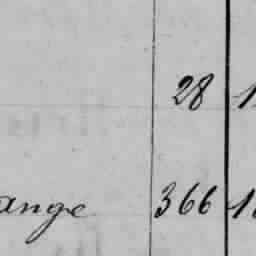 28
ange 366